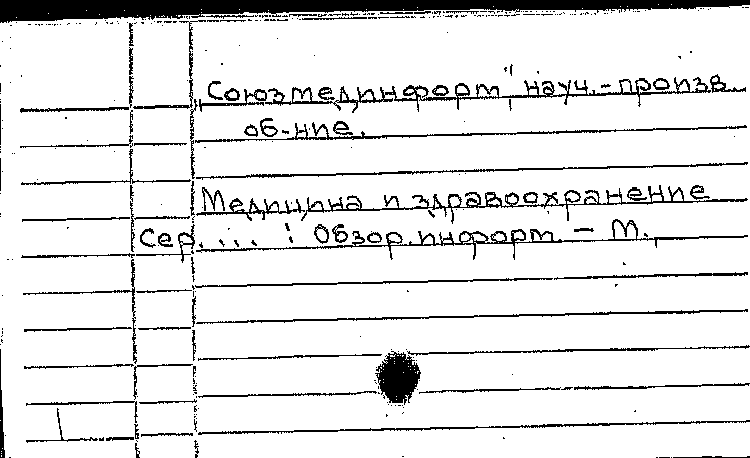 „Союзмединформ", науч.-произв.
об-ние.
Медицина и здравоохранение
Сер. ... : Обзор. информ. – М.,